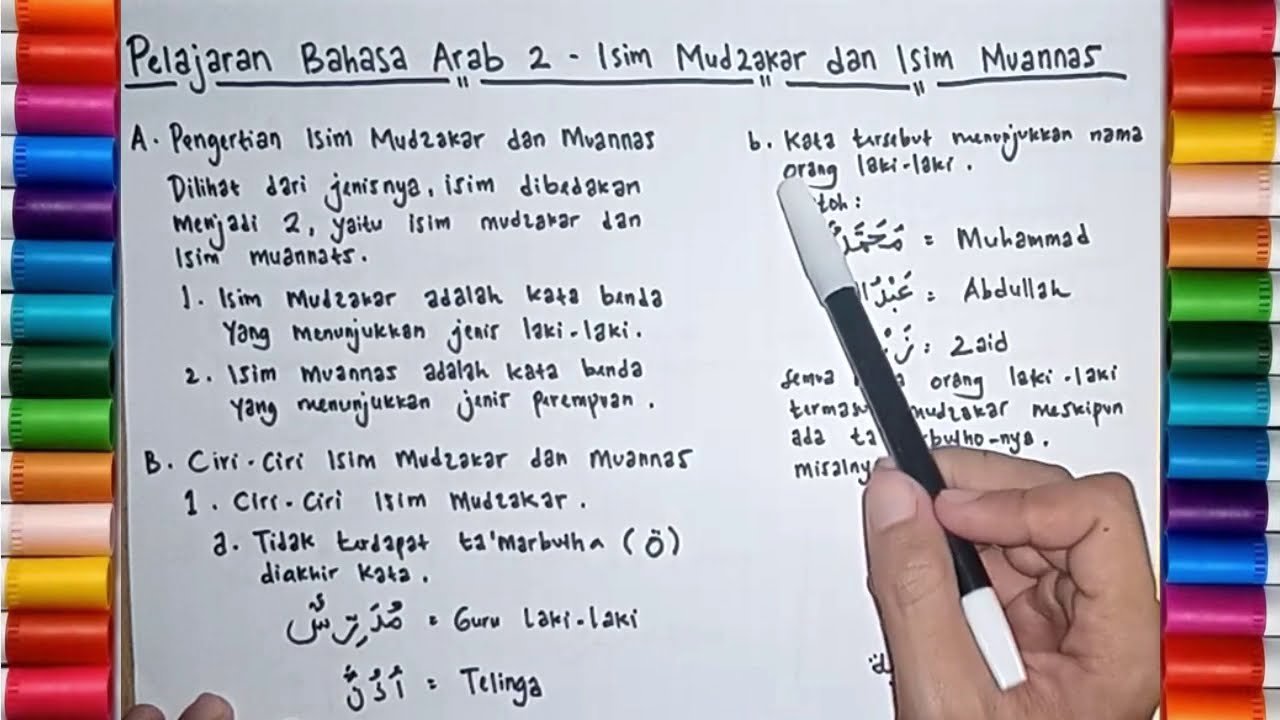 Pelajaran Bahasa Arab 2 - Isim Mudzakar dan Isim Muannas
A. Pengertian Isim Mudzakar dan Muannas
Dilihat dari jenisnya, isim dibedakan
menjadi 2, yaitu isim mudzakar dan
Isim muannats.
1. Isim Mudzakar adalah kata benda
yang menunjukkan jenis laki-laki.
2. Isim Muannas adalah kata benda
yang menunjukkan jenis perempuan.
B. Ciri-Ciri Isim Mudzakar dan Muannas
1. Ciri-Ciri Isim Mudzakar.
a. Tidak terdapat ta'Marbutha (ة)
diakhir kata.
مُدَرِّسٌ = Guru laki-laki
أُذُنٌ = Telinga
b. Kata tersebut menunjukkan nama
orang laki-laki.
toh:
= Muhammad
= Abdullah
: Zaid
Semua orang laki-laki
mudzakar meskipun
ada ta -nya.